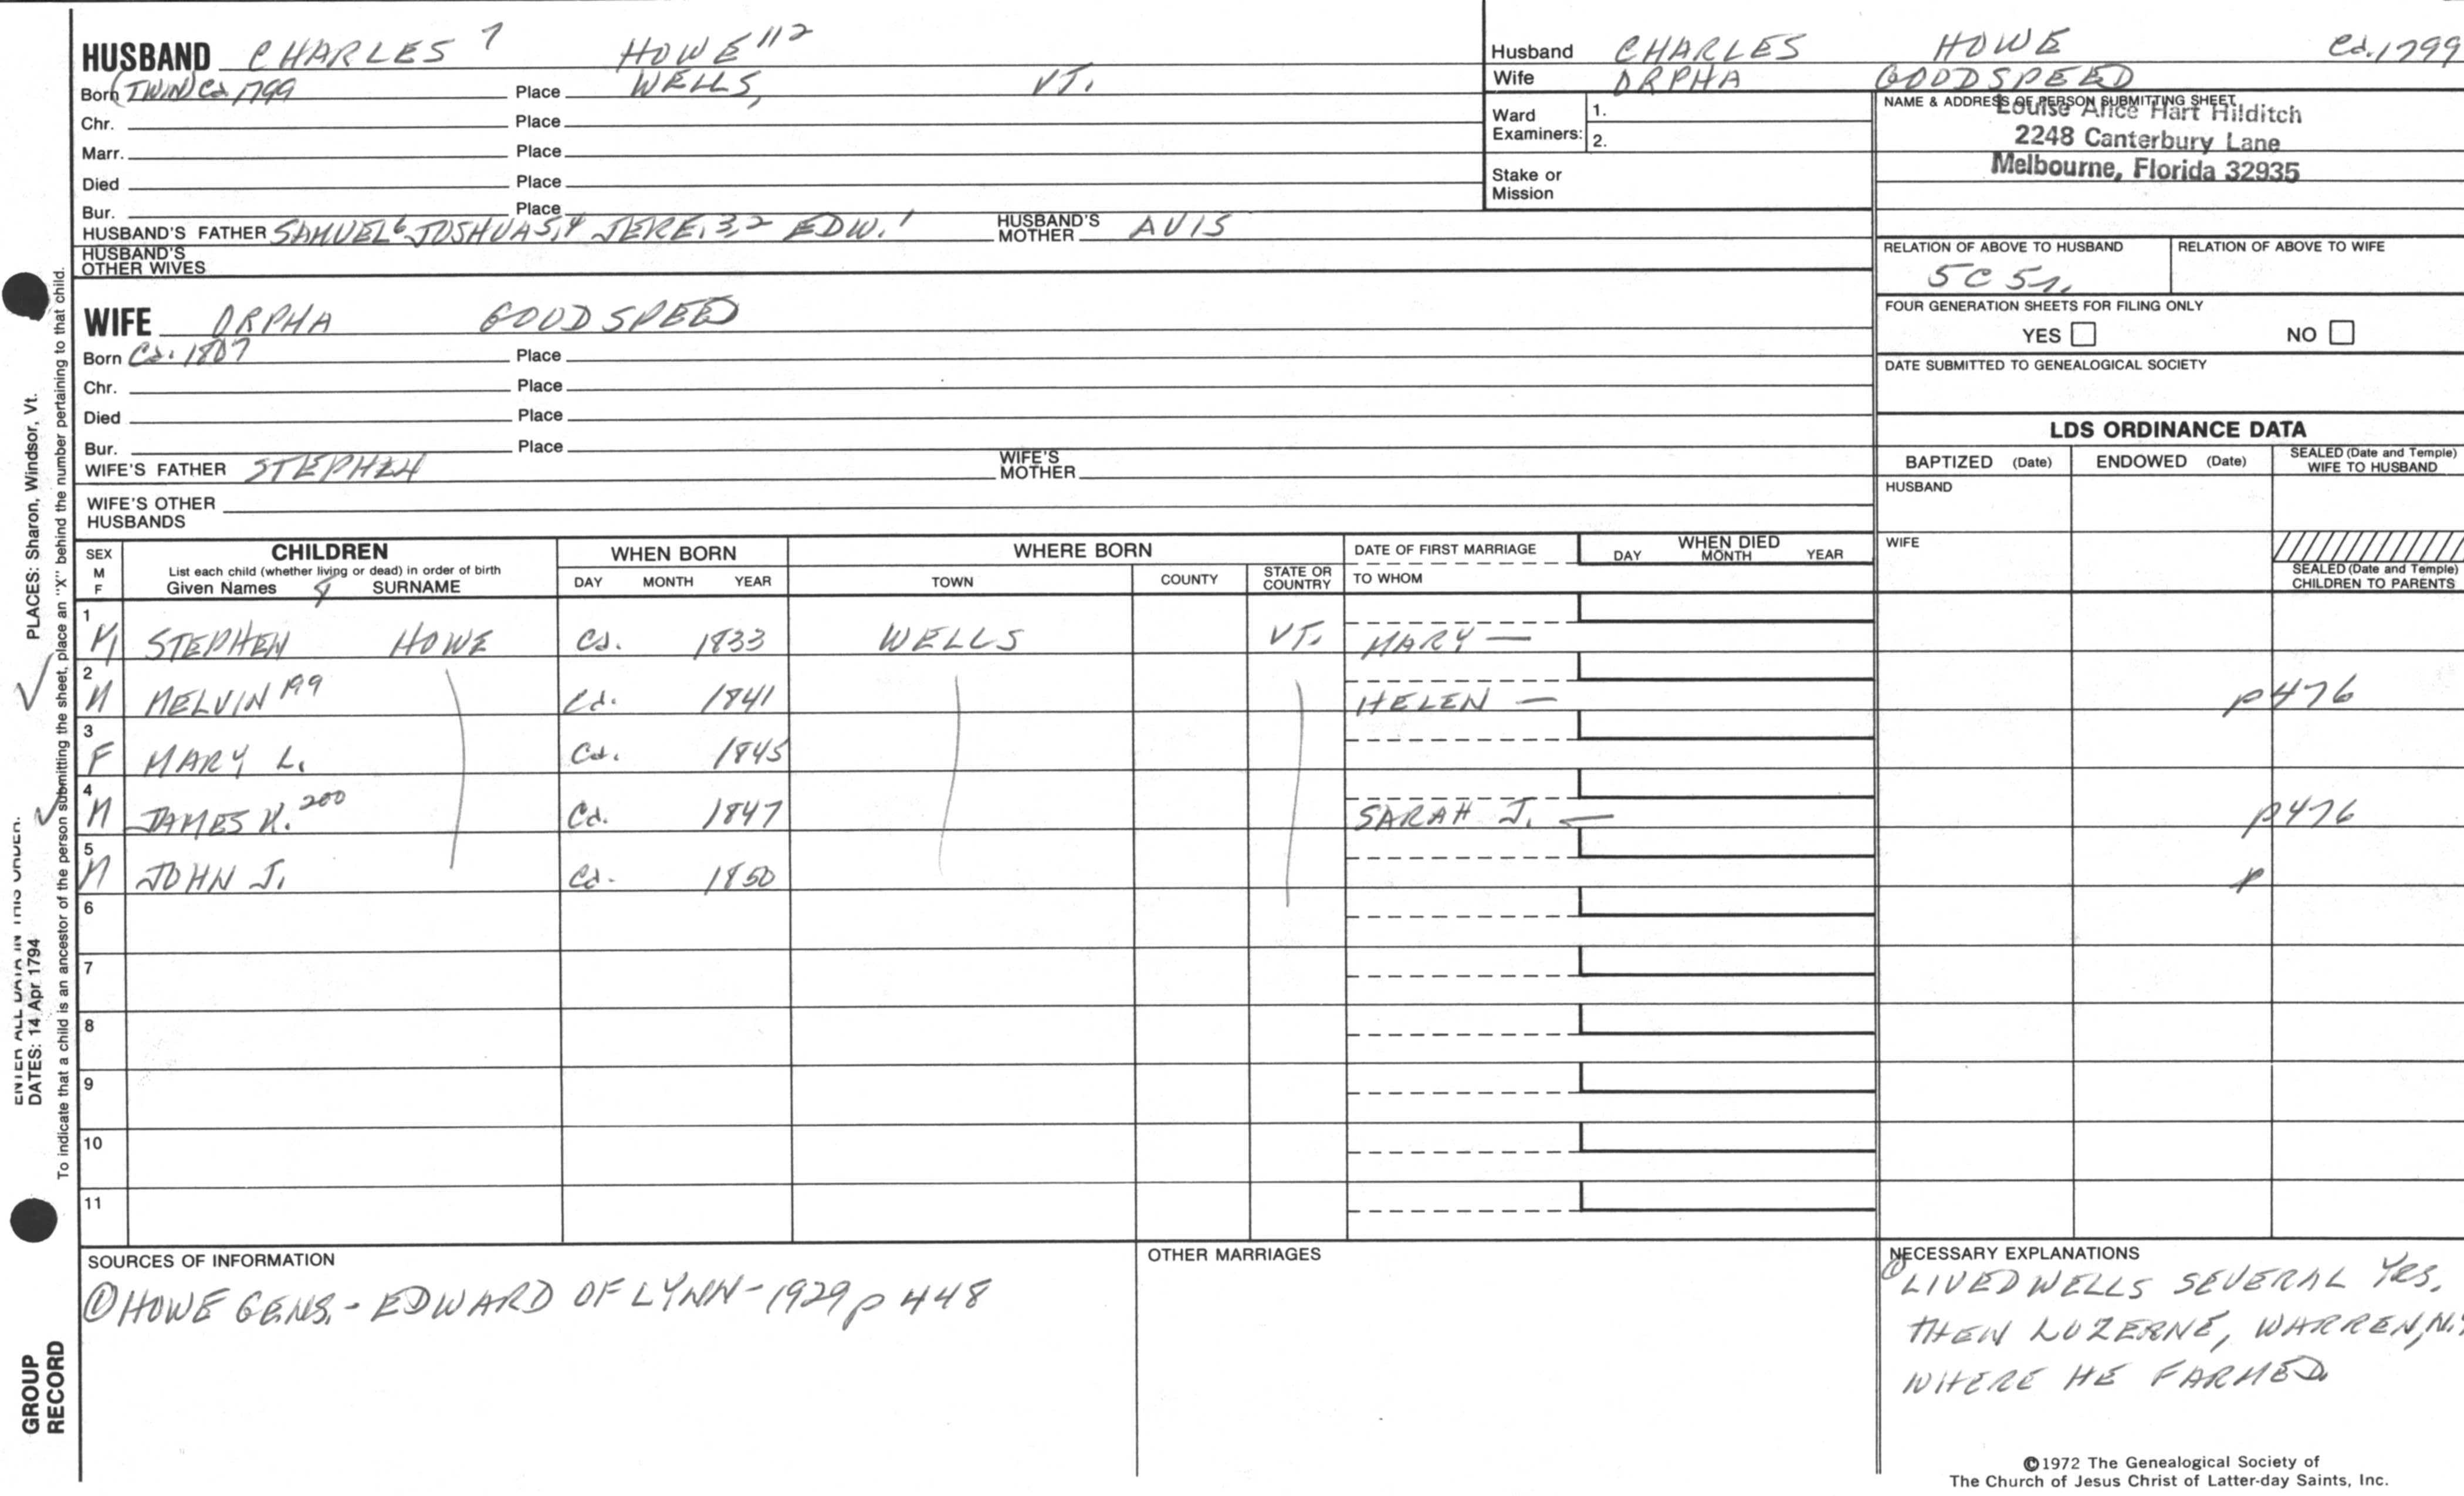 HUSBAND CHARLES 7 HOWE 112
Born (TWIN) Ca 1799 Place WELLS, VT.
Chr. Place
Marr. Place
Died Place
Bur. Place
HUSBAND'S FATHER SAMUEL 6 JOSHUA 5,4 JERE. 3,2 EDW. 1 HUSBAND'S MOTHER AVIS
HUSBAND'S OTHER WIVES
WIFE ORPHA GOODSPEED
Born Ca. 1807 Place
Chr. Place
Died Place
Bur. Place
WIFE'S FATHER STEPHEN WIFE'S MOTHER
WIFE'S OTHER HUSBANDS
Husband CHARLES HOWE Ca. 1799
Wife ORPHA GOODSPEED
Ward Examiners: 1.
2.
Stake or Mission
NAME & ADDRESS OF PERSON SUBMITTING SHEET
Louise Alice Hart Hilditch
2248 Canterbury Lane
Melbourne, Florida 32935
RELATION OF ABOVE TO HUSBAND RELATION OF ABOVE TO WIFE
5C 5r.
FOUR GENERATION SHEETS FOR FILING ONLY
YES NO
DATE SUBMITTED TO GENEALOGICAL SOCIETY
LDS ORDINANCE DATA
BAPTIZED (Date) ENDOWED (Date) SEALED (Date and Temple) WIFE TO HUSBAND
HUSBAND
WIFE
SEALED (Date and Temple) CHILDREN TO PARENTS
SEX M F CHILDREN WHEN BORN WHERE BORN DATE OF FIRST MARRIAGE WHEN DIED
List each child (whether living or dead) in order of birth
Given Names 8 SURNAME DAY MONTH YEAR TOWN COUNTY STATE OR COUNTRY TO WHOM DAY MONTH YEAR
1 M STEPHEN HOWE Ca. 1833 WELLS VT. MARY —
2 M MELVIN 199 Ca. 1841 HELEN — p476
3 F MARY L. Ca. 1845
4 M JAMES K. 200 Ca. 1847 SARAH J. — p476
5 M JOHN J. Ca. 1850
6
7
8
9
10
11
SOURCES OF INFORMATION
① HOWE GENS. - EDWARD OF LYNN - 1929 p 448
OTHER MARRIAGES
NECESSARY EXPLANATIONS
① LIVED WELLS SEVERAL YRS.
THEN LUZERNE, WARREN, N.Y
WHERE HE FARMED
©1972 The Genealogical Society of
The Church of Jesus Christ of Latter-day Saints, Inc.
PLACES: Sharon, Windsor, Vt.
ENTER ALL DATA IN THIS ORDER:
DATES: 14 Apr 1794
To indicate that a child is an ancestor of the person submitting the sheet, place an "X" behind the number pertaining to that child.
GROUP
RECORD